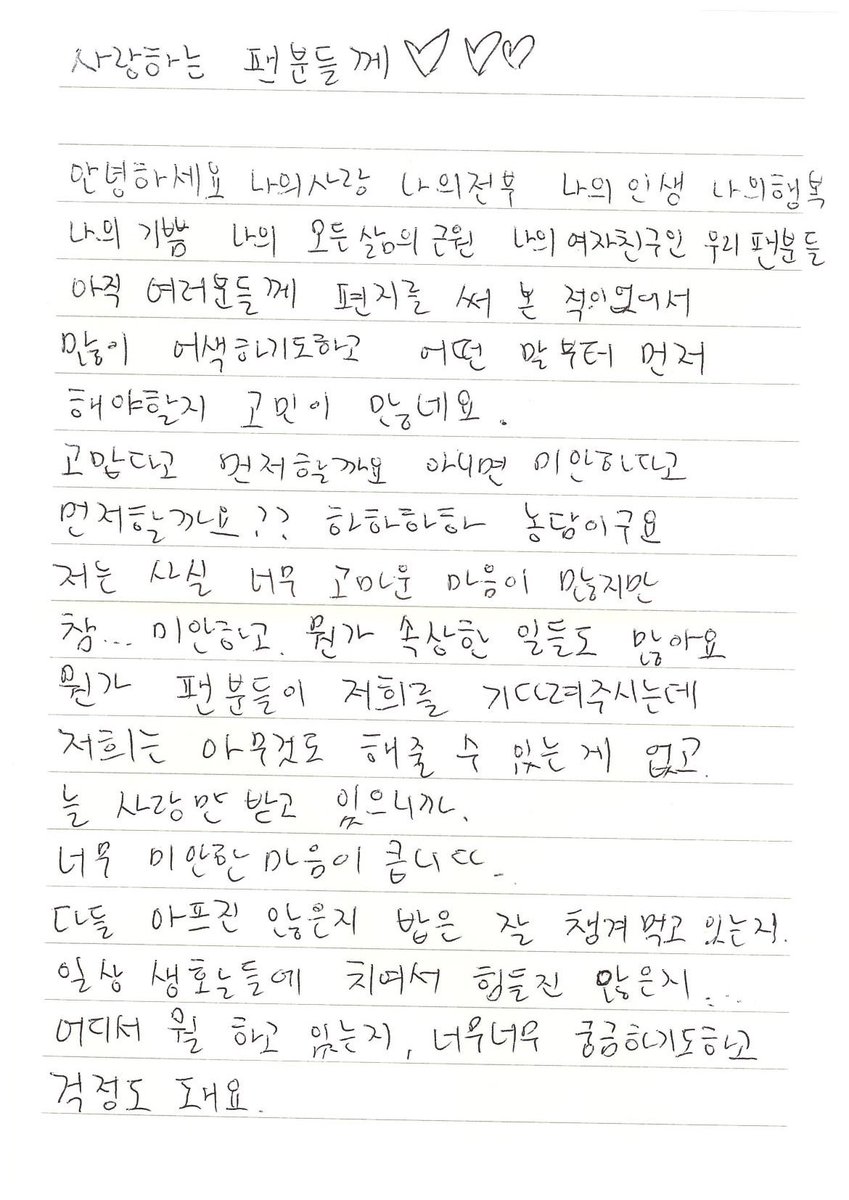 사랑하는 팬분들께♡♡♡
안녕하세요 나의사랑 나의전부 나의 인생 나의행복
나의 기쁨 나의 모든 삶의 근원 나의 여자친구인 우리 팬분들
아직 여러분들께 편지를 써 본 적이없어서
많이 어색하기도하고 어떤 말부터 먼저
해야할지 고민이 많네요.
고맙다고 먼저할까요 아니면 미안하다고
먼저할까요?? 하하하하 농담이구요
저는 사실 너무 고마운 마음이 많지만
참... 미안하고. 뭔가 속상한 일들도 많아요
뭔가 팬분들이 저희를 기다려주시는데
저희는 아무것도 해줄 수 있는게 없고.
늘 사랑만 받고 있으니까.
너무 미안한 마음이 큽니다.
다들 아프진 않은지 밥은 잘 챙겨먹고 있는지.
일상 생활들에 치여서 힘들진 않은지...
어디서 뭘 하고 있는지, 너무너무 궁금하기도하고
걱정도 돼요.